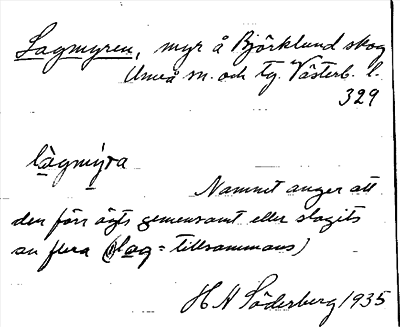 Lagmyren, myr å Björklund skog
Umeå sn. och tg. Västerb. l.
329
làgmýra
Namnet anger att
den förr ägts gemensamt eller slagits
av flera (lag = tillsammans)
H A Söderberg 1935